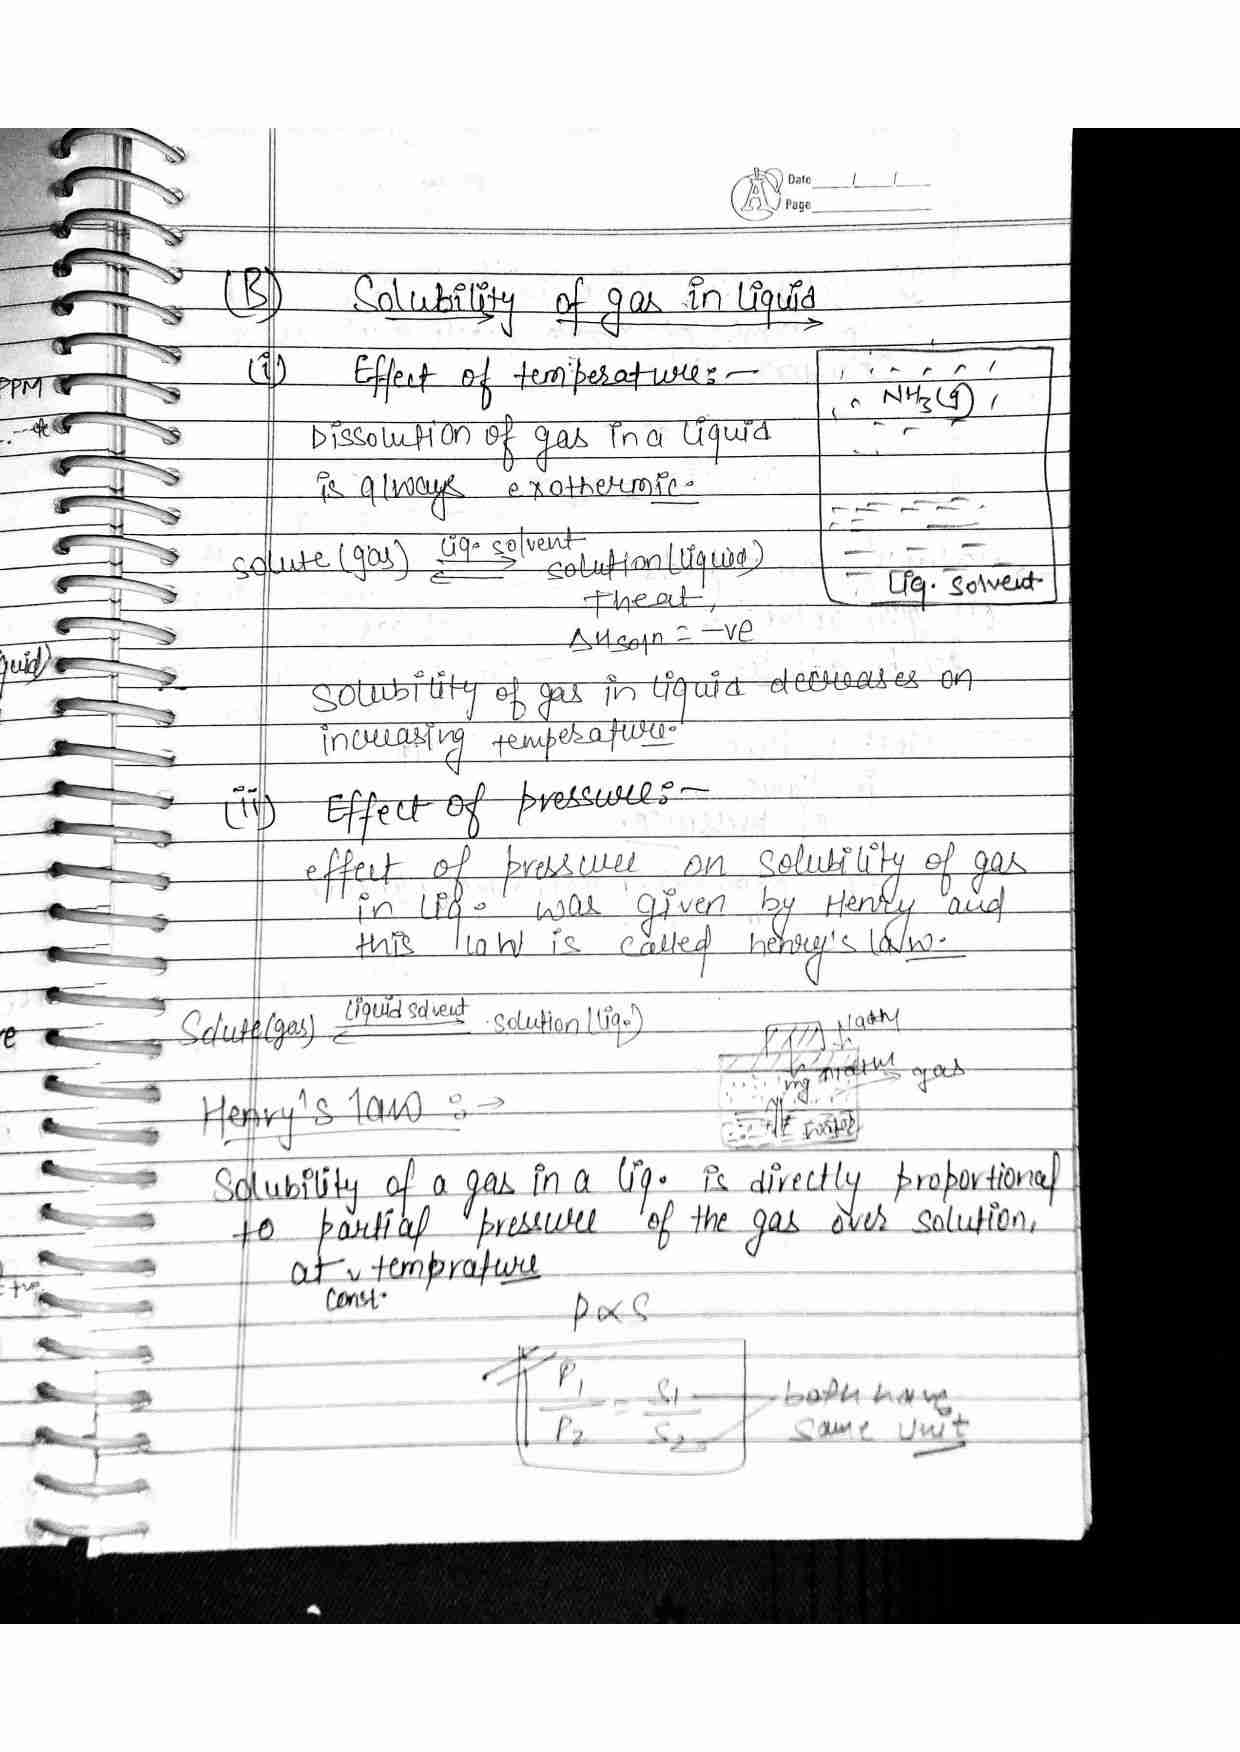 Date / /
Page
(B) Solubility of gas in liquid
(i) Effect of temperature:-
NH3(g)
Dissolution of gas in a liquid
is always exothermic.
solute (gas) ⇌ liq. solvent solution (liquid)
+heat,
ΔHsoln = -ve
Liq. solvent
Solubility of gas in liquid decreases on
increasing temperature.
(ii) Effect of pressure:-
effect of pressure on solubility of gas
in liq. was given by Henry and
this law is called henry's law.
Solute(gas) ⇌ liquid solvent solution (liq.)
gas
Henry's law :→
Solubility of a gas in a liq. is directly proportional
to partial pressure of the gas over solution,
at const. temprature
P∝S
P1/P2 = S1/S2 both have
same unit
PPM
quid)
+ve